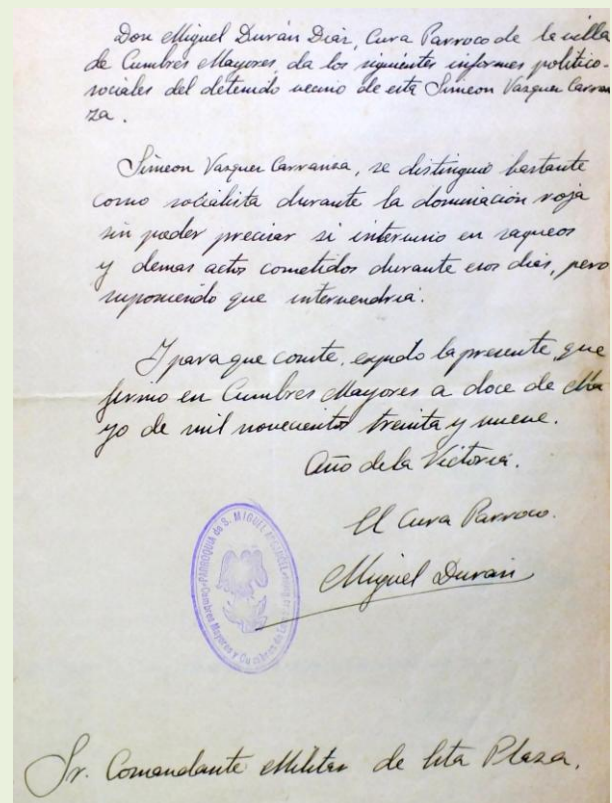 Don Miguel Durán Diaz, Cura Parroco de la villa
de Cumbres Mayores, da los siguientes informes politico-
sociales del detenido vecino de esta Simeon Vazquez Carran
za.
Simeon Vazquez Carranza, se distinguió bastante
como socialista durante la dominación roja
sin poder precisar si intervino en saqueos
y demas actos cometidos durante esos dias, pero
suponiendo que intervendria.
Y para que conste, expido la presente, que
firmo en Cumbres Mayores a doce de Ma
yo de mil novecientos treinta y nueve.
Año de la Victoria.
El Cura Parroco.
Miguel Durán
PARROQUIA de S. MIGUEL
Cumbres Mayores y Cumbres de
Sr. Comandante Militar de esta Plaza.